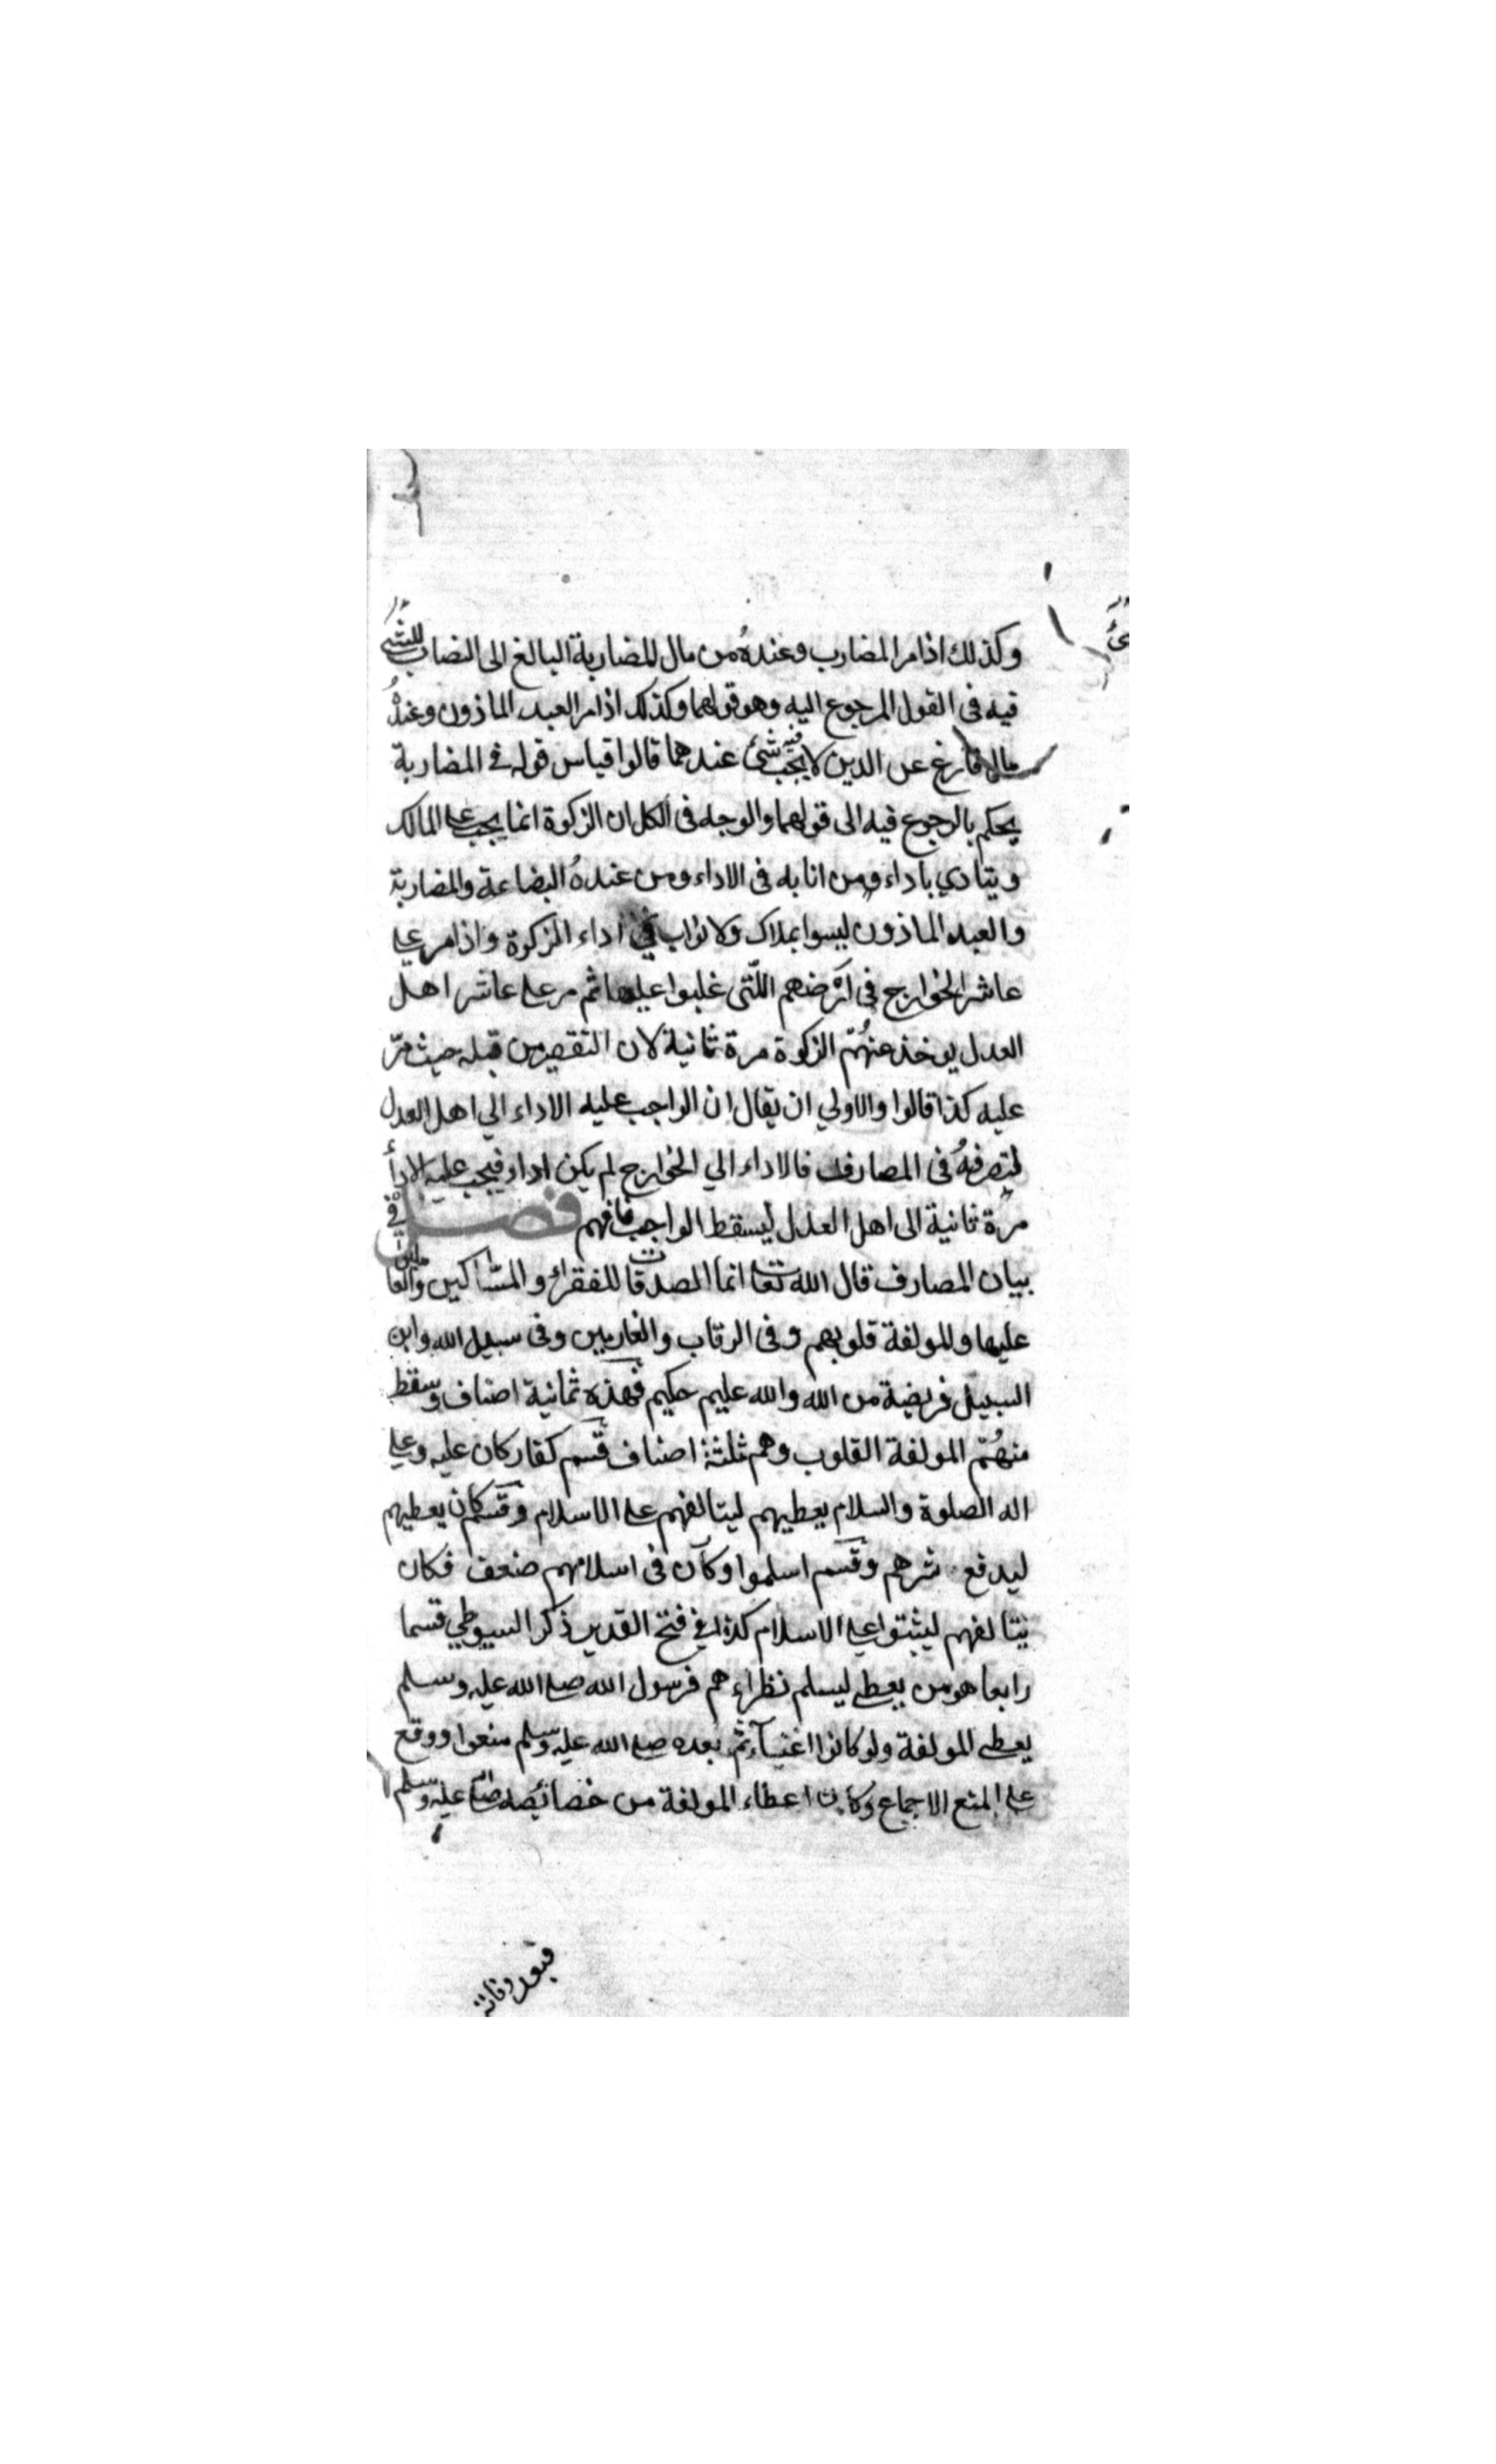 وكذلك اذا مر المضارب وعنده من مال المضاربة البالغ الى النصاب ليس شئ
فيه فى القول المرجوع اليه وهو قولهما وكذلك اذا مر العبد الماذون وعنده
مال فارغ عن الدين لا يجب فيه شئ عندهما قالوا قياس قوله في المضاربة
يحكم بالرجوع فيه الى قولهما والوجه فى الكل ان الزكوة انما يجب على المالك
ويتادي باداء ومن انابه فى الاداء ومن عنده البضاعة والمضاربة
والعبد الماذون ليسوا بملاك ولا نواب في اداء الزكوة واذا مر على
عاشر الخوارج فى ارضهم اللتى غلبوا عليها ثم مر على عاشر اهل
العدل يوخذ عنهم الزكوة مرة ثانية لان التقصير من قبله حيث مر
عليه كذا قالوا والاولي ان يقال ان الواجب عليه الاداء الي اهل العدل
ليصرفه فى المصارف فالاداء الي الخوارج لم يكن اداء فيجب عليه الاداء
مرة ثانية الى اهل العدل ليسقط الواجب فافهم فصل في
بيان المصارف قال الله تعا انما الصدقات للفقراء والمساكين والعاملين
عليها وللمولفة قلوبهم وفى الرقاب والغارمين وفى سبيل الله وابن
السبيل فريضة من الله والله عليم حكيم فهذه ثمانية اصناف وسقط
منهم المولفة القلوب وهم ثلثة اصناف قسم كفار كان عليه وعلى
اله الصلوة والسلام يعطيهم ليتالفهم على الاسلام وقسم كان يعطيهم
ليدفع شرهم وقسم اسلموا وكان فى اسلامهم ضعف فكان
يتالفهم ليثبتوا على الاسلام كذا في فتح القدير ذكر السيوطي قسما
رابعا هو من يعطى ليسلم نظراءهم فرسول الله صلى الله عليه وسلم
يعطى المولفة ولو كانوا اغنياء ثم بعده صلى الله عليه وسلم منعوا ووقع
على المنع الاجماع وكان اعطاء المولفة من خصائصه صلى الله عليه وسلم
فبعد وفاته